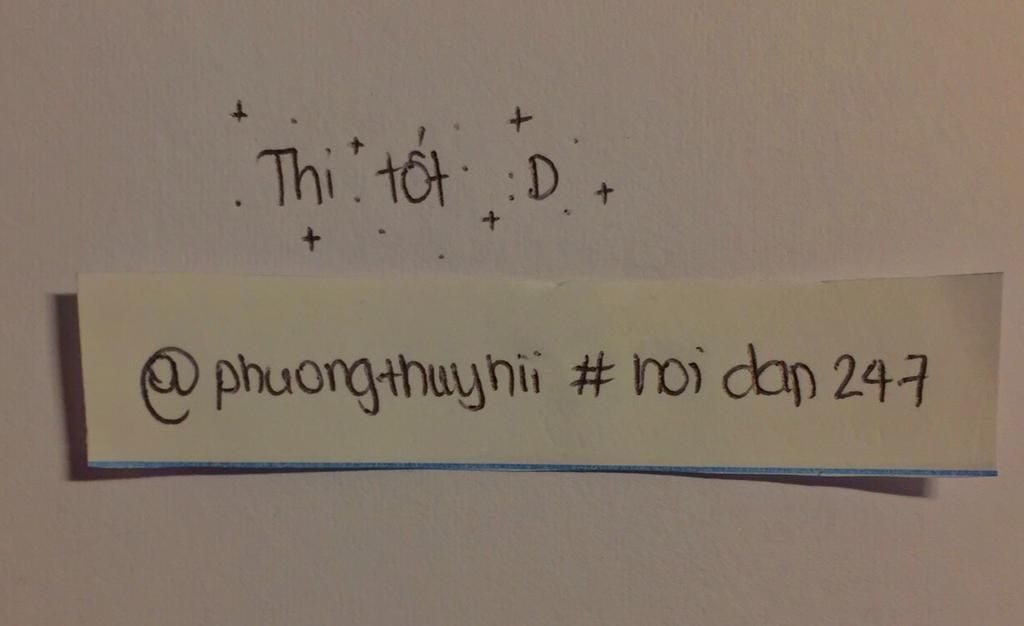 Thi tốt :D
@phuongthuyhii # noi dan 247